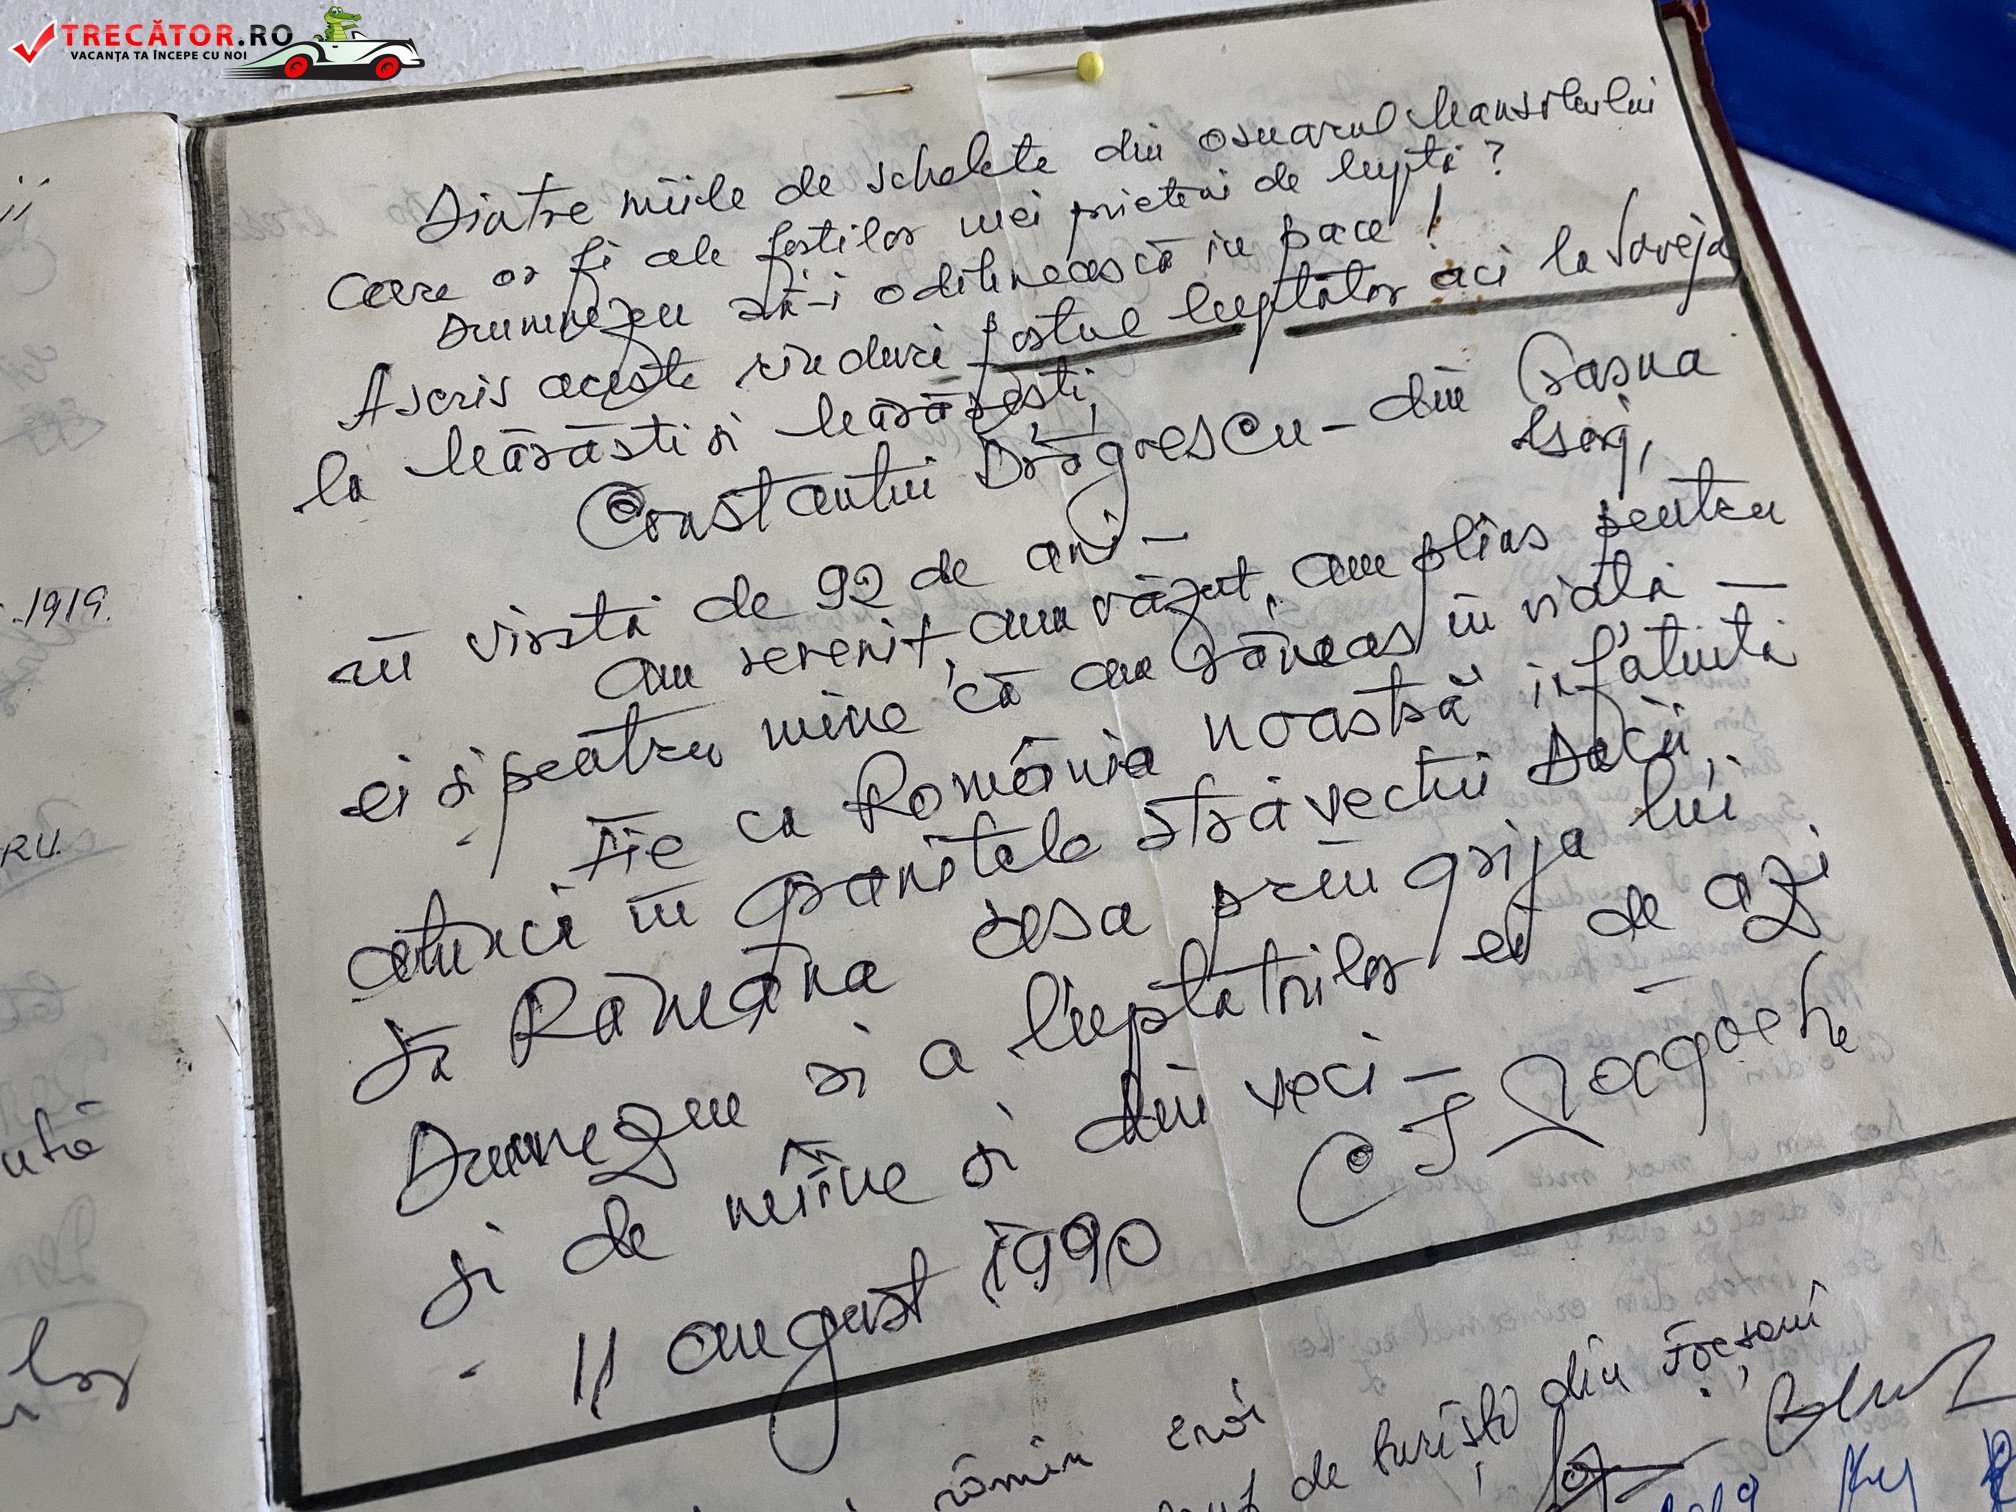 TRECĂTOR.RO
VACANȚA TA ÎNCEPE CU NOI
Dintre miile de schelete din osuarul Mausoleului
care or fi ale foștilor mei prieteni de luptă?
Dumnezeu să-i odihnească în pace!
A scris aceste rînduri fostul luptător aci la Soveja
la Mărăști și Mărășești,
Constantin Drăgoescu - din Crasna
Gorj,
în vîrstă de 92 de ani -
am revenit, am văzut, am plîns pentru
ei și pentru mine că am rămas în viață -
Fie ca România noastră înfăptuită
atunci în granițele străvechii Dacii,
să Rămână așa prin grija lui
Dumnezeu și a luptătorilor ei de azi
și de mîine și din veci -
11 august 1990
1919.
RU.
român eroi
de turiști din Focșani